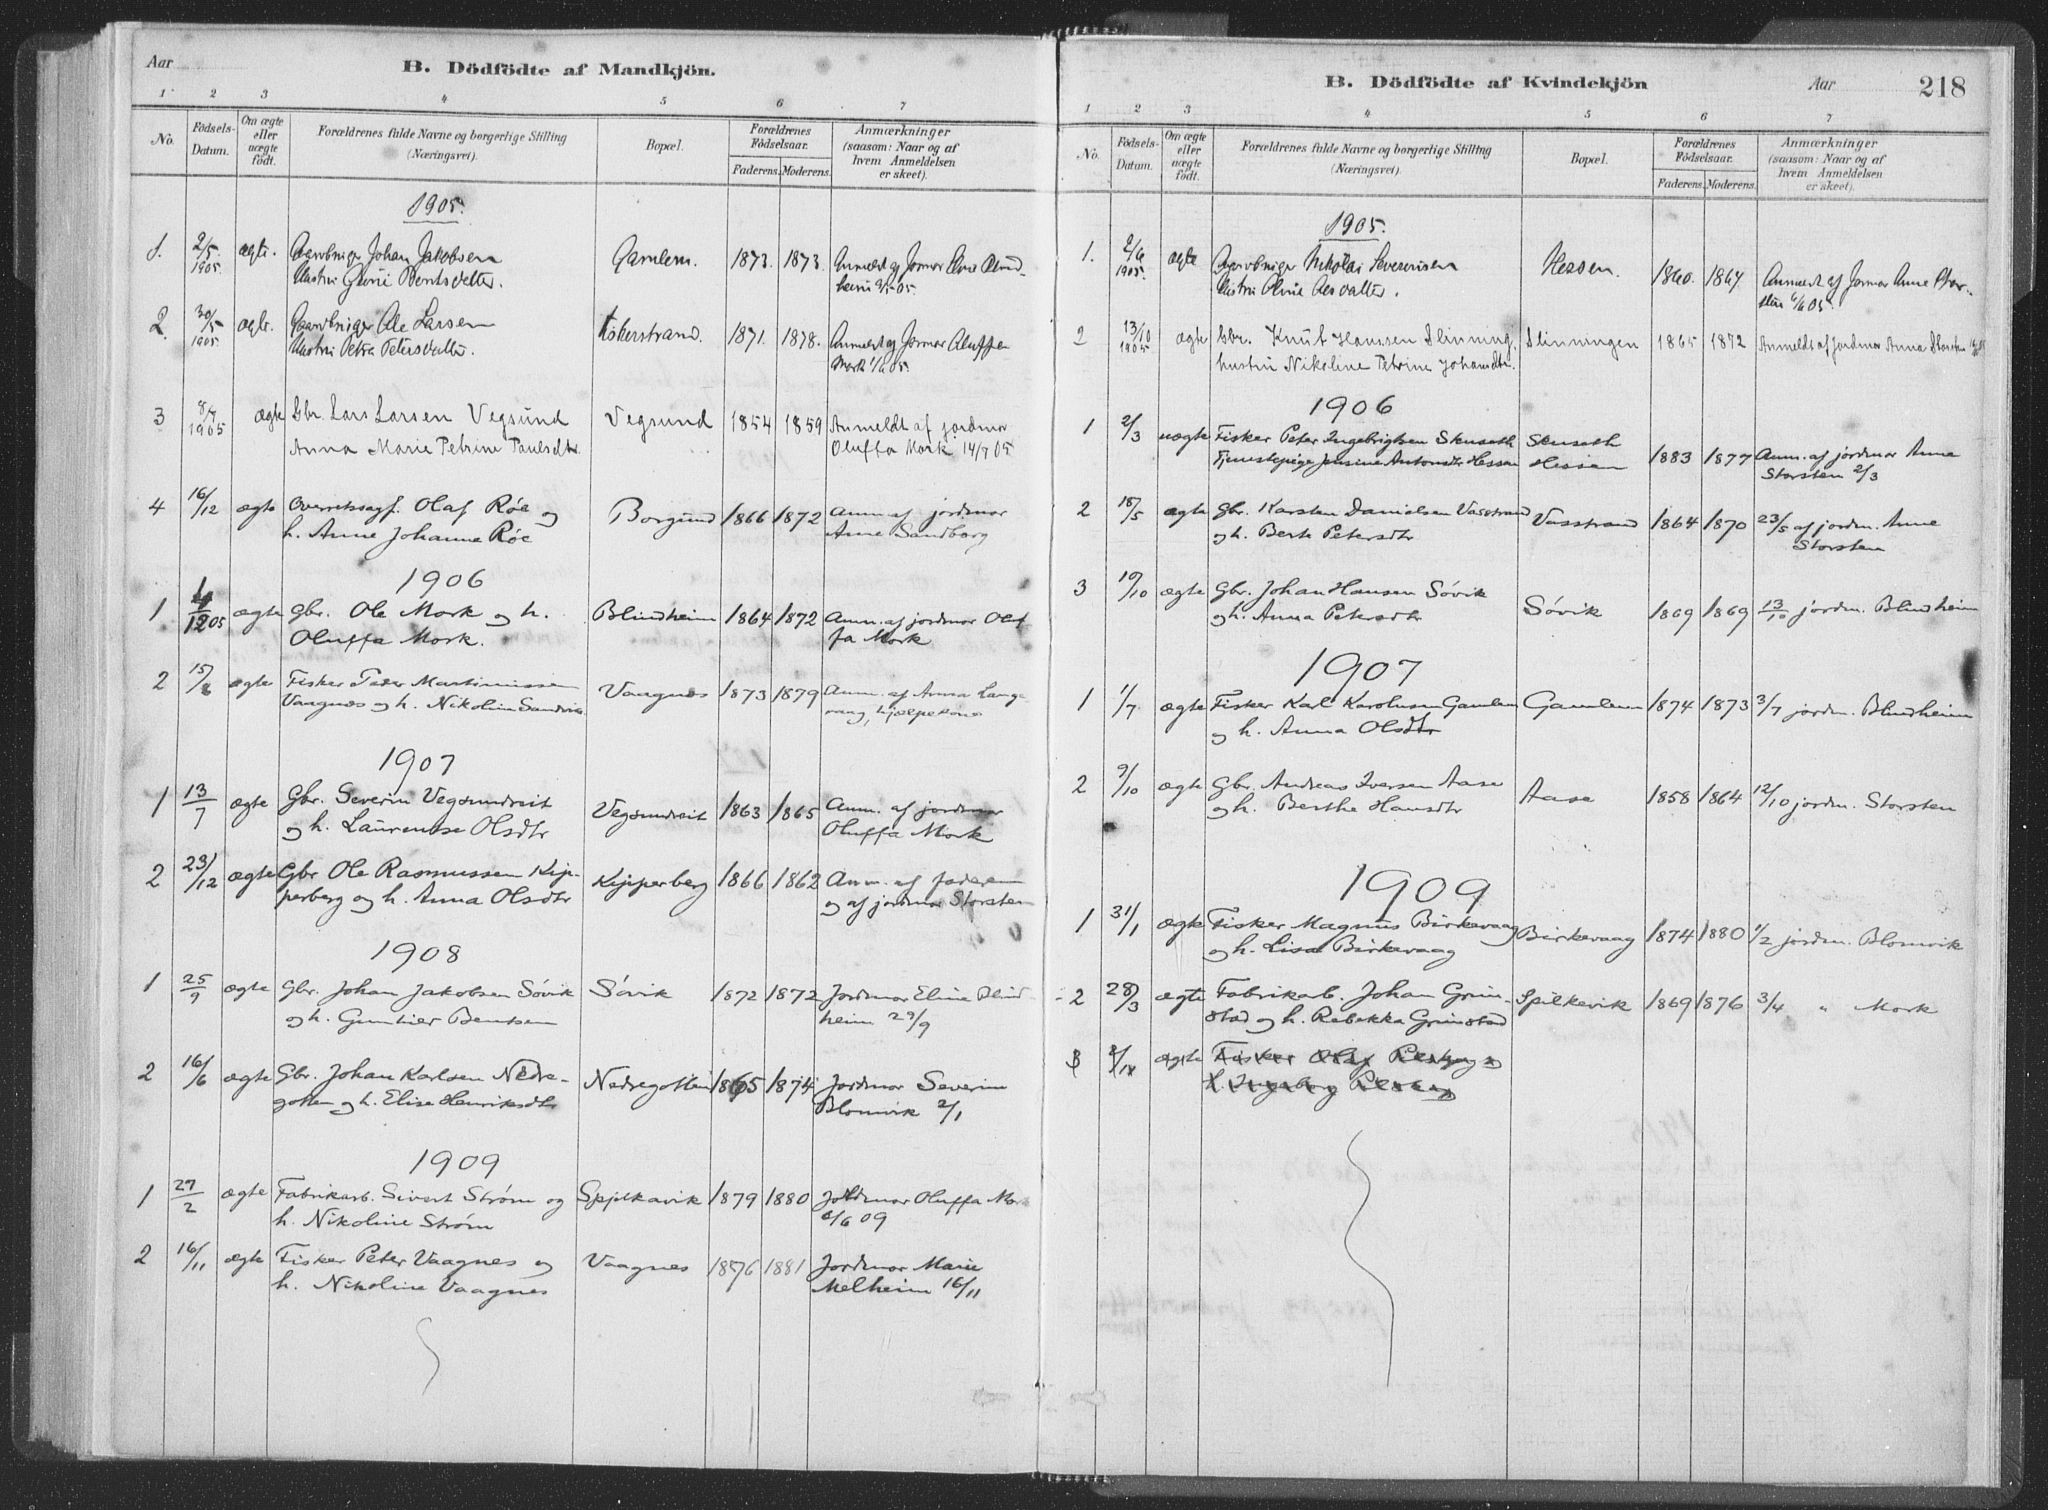 Aar
B. Dödfödte af Mandkjön.
1 2 3 4 5 6 7
No.
Födsels-Datum.
Om ægte eller uægte födt.
Forældrenes fulde Navne og borgerlige Stilling
(Næringsvei).
Bopæl.
Forældrenes Födselsaar.
Faderens. Moderens.
Anmærkninger
(saasom: Naar og af
hvem Anmeldelsen
er skeet).
1905.
1. 2/5 1905. ægte. Gaardbruger Johan Jakobsen Gamlem. 1873. 1873.
Hustru Bentsdatter.
2 30/5 1905. ægte. Gaardbruger Ole Larsen 1871. 1878. Anmeldt af Jormor Oluffa
Hustru Petra Petersdatter. Mork 1/6 05.
3 1905 ægte Gbr. Lars Larsen Vegsund Vegsund 1854 1859 Anmeldt af jordmor
Anna Marie Petrine Paulsdtr. Oluffa Mork 14/9 05
4 16/12 ægte Overretssagf. Olaf Röe og Borgund 1866 1872 Anm. af jordmor
h. Anne Johanne Röe Anne Sandborg
1906
1 4/12 05 ægte Gbr. Ole Mork og h. Blindheim 1864 1872 Anm. af jordmor Oluf-
Oluffa Mork. fa Mork
2 ægte Fisker Peder Martinussen Vaagnes 1873 1879 Anm. af Anna Lange
Vaagnes og h. Nikoline hjælpekone
1907
1 13/7 ægte Gbr. Severin Vegsundreit Vegsundreit 1863 1865 Anm. af jordmor
og h. Laurentse Olsdtr Oluffa Mork
2 23/12 ægte Gbr Ole Rasmussen Kip- Kipperberg 1866 1862 Anm. af faderen
perberg og h. Anna Olsdtr og af jordmor Storsten
1908
1 25/9 ægte Gbr. Johan Jakobsen Sövik Sövik 1872 1872 Jordmor Eline Blind-
og h. Bentsen heim 29/9
2 16/6 ægte Gbr. Johan Karlsen Nedre- Nedregotten 1865 1874 Jordmor Severin
gotten og h. Elise Henriksdtr Blomvik 2/1
1909
1 27/2 ægte Fabrikarb. Sivert Ström og Spjelkavik 1879 1880 Jordmor Oluffa Mork
h. Nikoline Ström 09
2 16/11 ægte Fisker Peter Vaagnes og Vaagnes 1876 1881 Jordmor Marie
h. Nikoline Vaagnes Melheim 16/11
B. Dödfödte af Kvindekjön
Aar
218
1 2 3 4 5 6 7
No.
Födsels-Datum.
Om ægte eller uægte födt.
Forældrenes fulde Navne og borgerlige Stilling
(Næringsvei).
Bopæl.
Forældrenes Födselsaar.
Faderens. Moderens.
Anmærkninger
(saasom: Naar og af
hvem Anmeldelsen
er skeet).
1905.
1. 2/6 1905. ægte Gaardbruger Nikolai Severinsen Hessen. 1860. 1867 Anmeldt af Jormor Anne Stor-
Hustru sten 6/6 05.
2 13/10 1905 ægte Gbr. Knut Hansen Slinning, Slinningen 1865 1872 Anmeldt af jordmor Anna Storsten
hustru Nikoline Petrine Johansdtr.
1906
1 2/3 uægte Fisker Peter Ingebrigtsen Skuseth Skuseth
Tjenestepige Jensine Antonsdtr Hessen Hessen 1883 1877 Anm. af jordmor Anne
Storsten 2/3
2 18/5 ægte Gbr. Karsten Danielsen Vasstrand Vasstrand 1864 1870 23/5 af jordm. Anne
og h. Berte Petersdtr Storsten
3 10/10 ægte Gbr. Johan Hansen Sövik Sövik 1869 1869 13/10 jordm. Blindheim
og h. Anna Petersdtr
1907
1 1/7 ægte Fisker Karl Karolusen Gamlem Gamlem 1874 1873 3/7 jordm. Blindheim
og h. Anna Olsdtr
2 9/10 ægte Gbr. Andreas Iversen Aase Aase 1858 1864 12/10 jordm. Storsten
og h. Berthe Hansdtr
1909
1 31/1 ægte Fisker Magnus Birkevaag Birkevaag 1874 1880 1/2 jordm. Blomvik
og h. Lisa Birkevaag
2 28/3 ægte Fabrikarb. Johan Grim- Spilkevik 1869 1876 3/4 " Mork
stad og h. Rebekka Grimstad
3 ægte Fisker Olaf og
h. Ingeborg